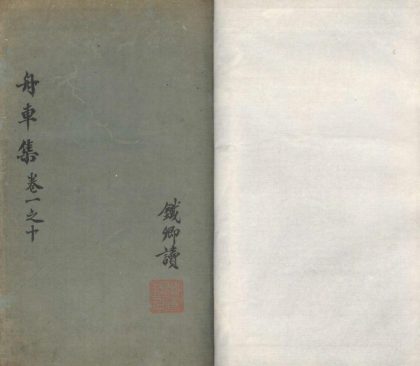 舟車集卷一之十
鐵卿讀